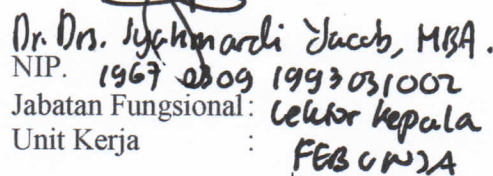 Dr. Drs. Syahmardi Yacob, MBA.
NIP. 1967 0309 199303 1002
Jabatan Fungsional : Lektor Kepala
Unit Kerja : FEB UNJA